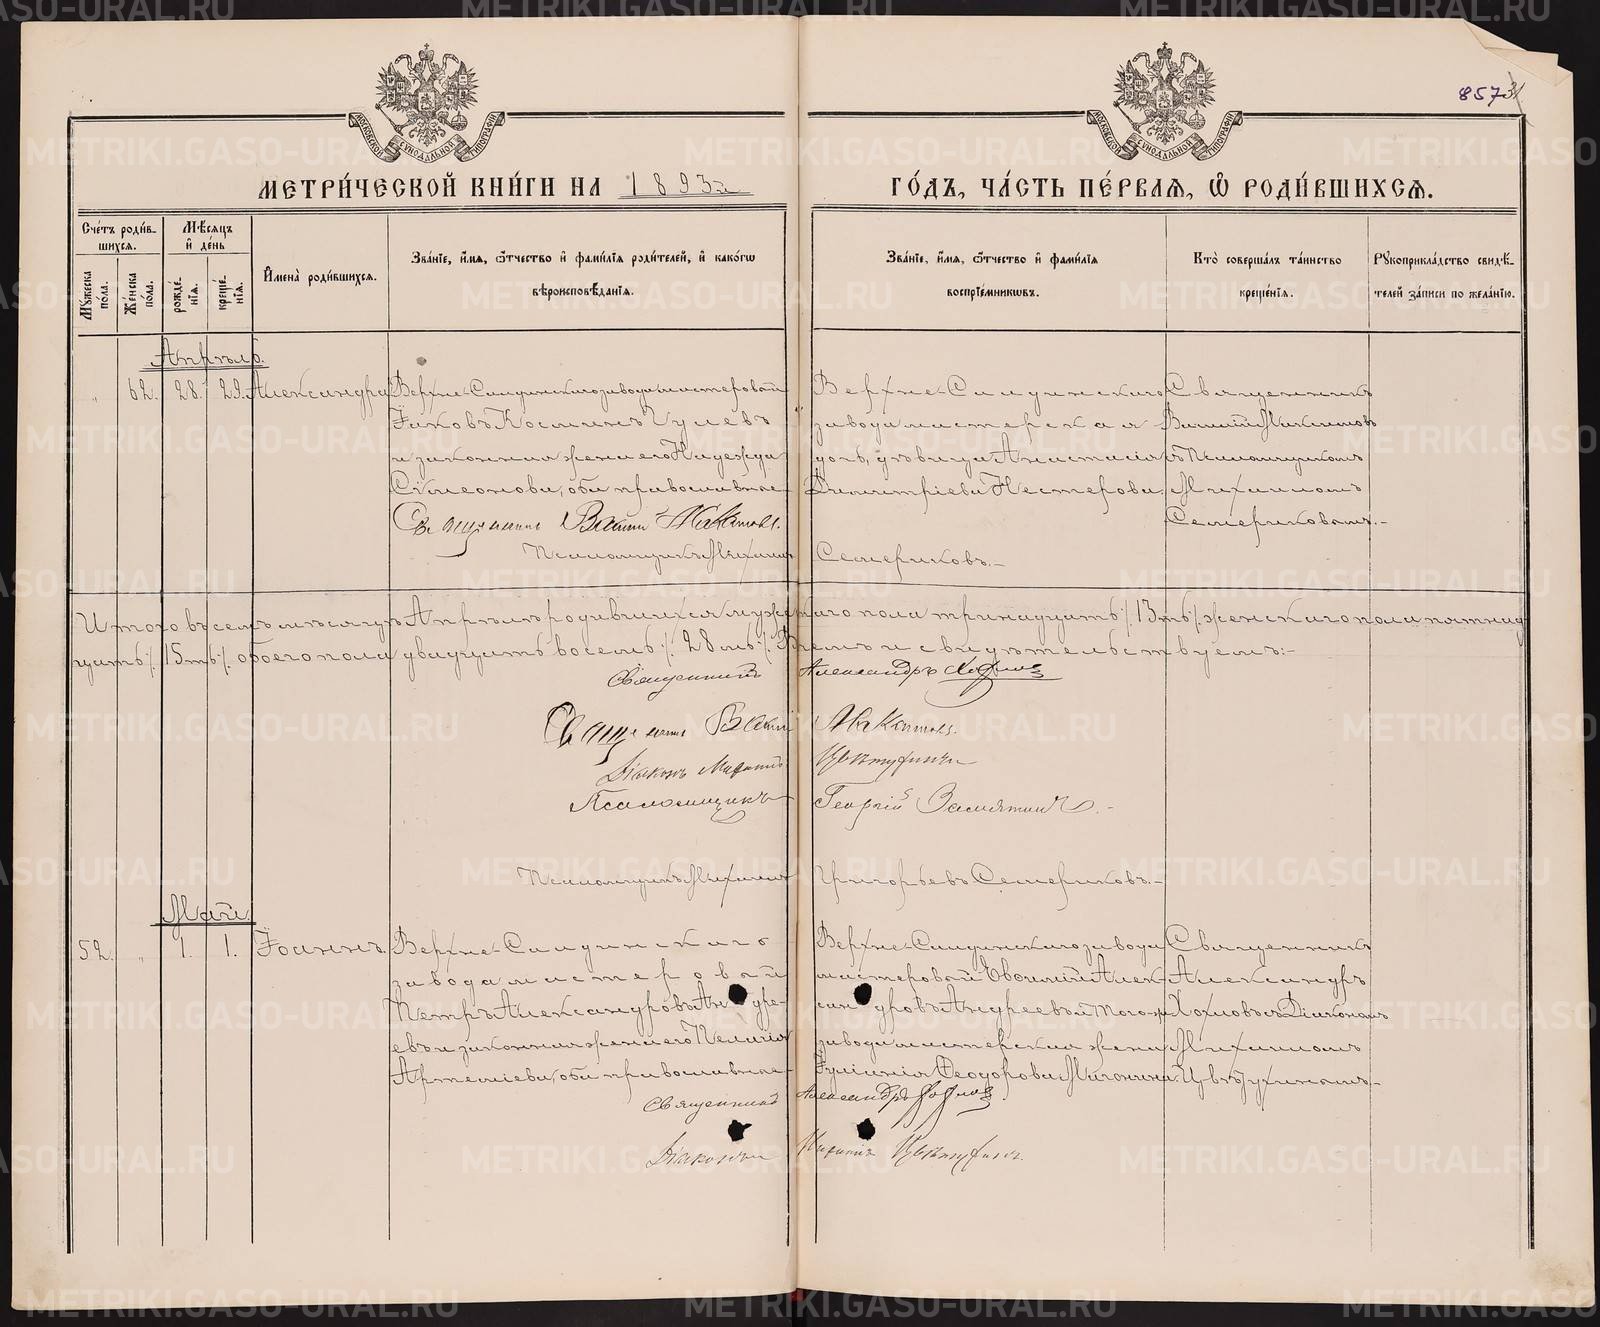 857
МЕТРИ́ЧЕСКОЙ КНИ́ГИ НА 1893й ГО́ДЪ, ЧА́СТЬ ПЕ́РВАЯ, Ѡ РОДИ́ВШИХСЯ.
Сче́тъ роди́в-
шихся.
Мѣ́сяцъ
и҆ де́нь
Мꙋжеска
по́ла.
Же́нска
по́ла.
рожде́-
нія.
креще́-
нія.
И҆мена̀ роди́вшихся.
Зва́ніе, и҆́мя, ѻ҆́тчество и҆ фами́лія роди́телей, и҆ како́гѡ
вѣроисповѣ́данія.
Зва́ніе, и҆́мя, ѻ҆́тчество и҆ фами́лія
воспріе́мникѡвъ.
Кто̀ соверша́лъ та́инство
креще́нія.
Рꙋкоприкла́дство свидѣ́-
телей за́писи по жела́нію.
Апрѣль.
" 62. 28. 29. Александра
Верхне-Салдинскаго завода мастеровой
Іаковъ Косминъ Гулевъ
и законная жена его Надежда
Симеонова, оба православные
Верхне-Салдинскаго
завода мастерская
дочь, дѣвица Анастасія
Димитріева Нестерова.
Священникъ
Василій Макаровъ
съ Псаломщикомъ
Михаиломъ
Семериковымъ.-
Священникъ Василій
Псаломщикъ Михаилъ Семериковъ.-
Итого въ семъ мѣсяцѣ Апрѣлѣ родившихся мужескаго пола тринадцать /. 13ть /. женскаго пола пятнад-
цать /. 15ть /. обоего пола двадцать восемь /. 28мь /. въ чемъ и свидѣтельствуемъ:-
Священникъ Александръ Хохловъ
Священникъ Василій
Діаконъ Михаилъ Цвѣтухинъ
Псаломщикъ Георгій Замятинъ.-
Псаломщикъ Михаилъ Григорьевъ Семериковъ.-
Май.
52. " 1. 1. Іоаннъ.
Верхне-Салдинскаго
завода мастеровой
Петръ Александровъ Андре-
евъ и законная жена его Пелагія
Артеміева, оба православные
Верхне-Салдинскаго завода
мастеровой Евфимій Алек-
сандровъ Андреевъ и того-же
завода мастерская жена
Іуліанія Ѳеодорова
Священникъ
Александръ
Хохловъ съ Діакономъ
Михаиломъ
Цвѣтухинымъ.-
Священникъ Александръ Хохловъ
Діаконъ Михаилъ Цвѣтухинъ.
METRIKI.GASO-URAL.RU